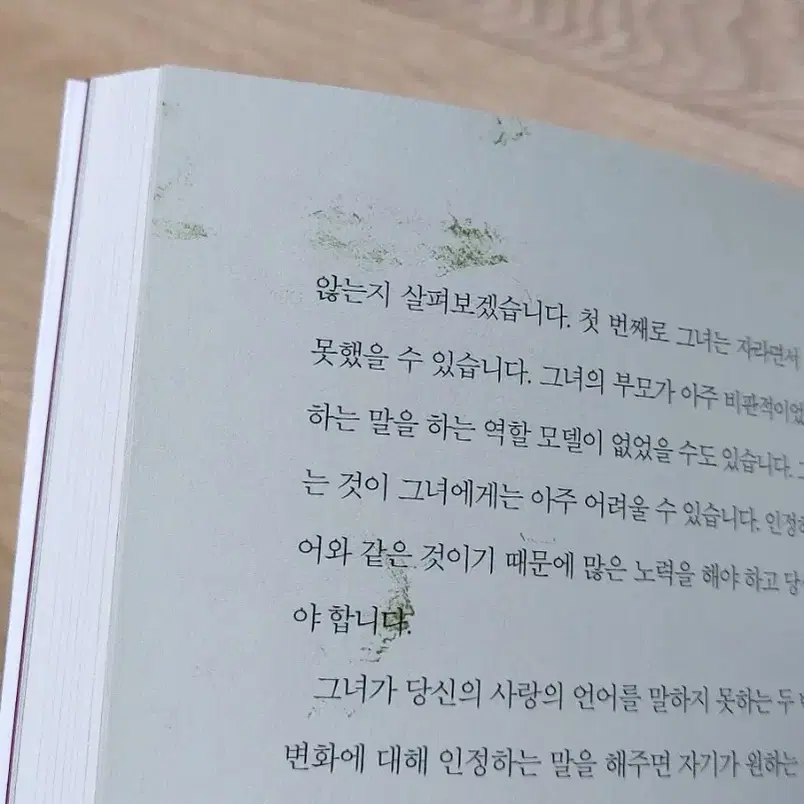 않는지 살펴보겠습니다. 첫 번째로 그녀는 자라면서
못했을 수 있습니다. 그녀의 부모가 아주 비판적이었
하는 말을 하는 역할 모델이 없었을 수도 있습니다.
는 것이 그녀에게는 아주 어려울 수 있습니다. 인정하
어와 같은 것이기 때문에 많은 노력을 해야 하고
야 합니다.
그녀가 당신의 사랑의 언어를 말하지 못하는 두
변화에 대해 인정하는 말을 해주면 자기가 원하는